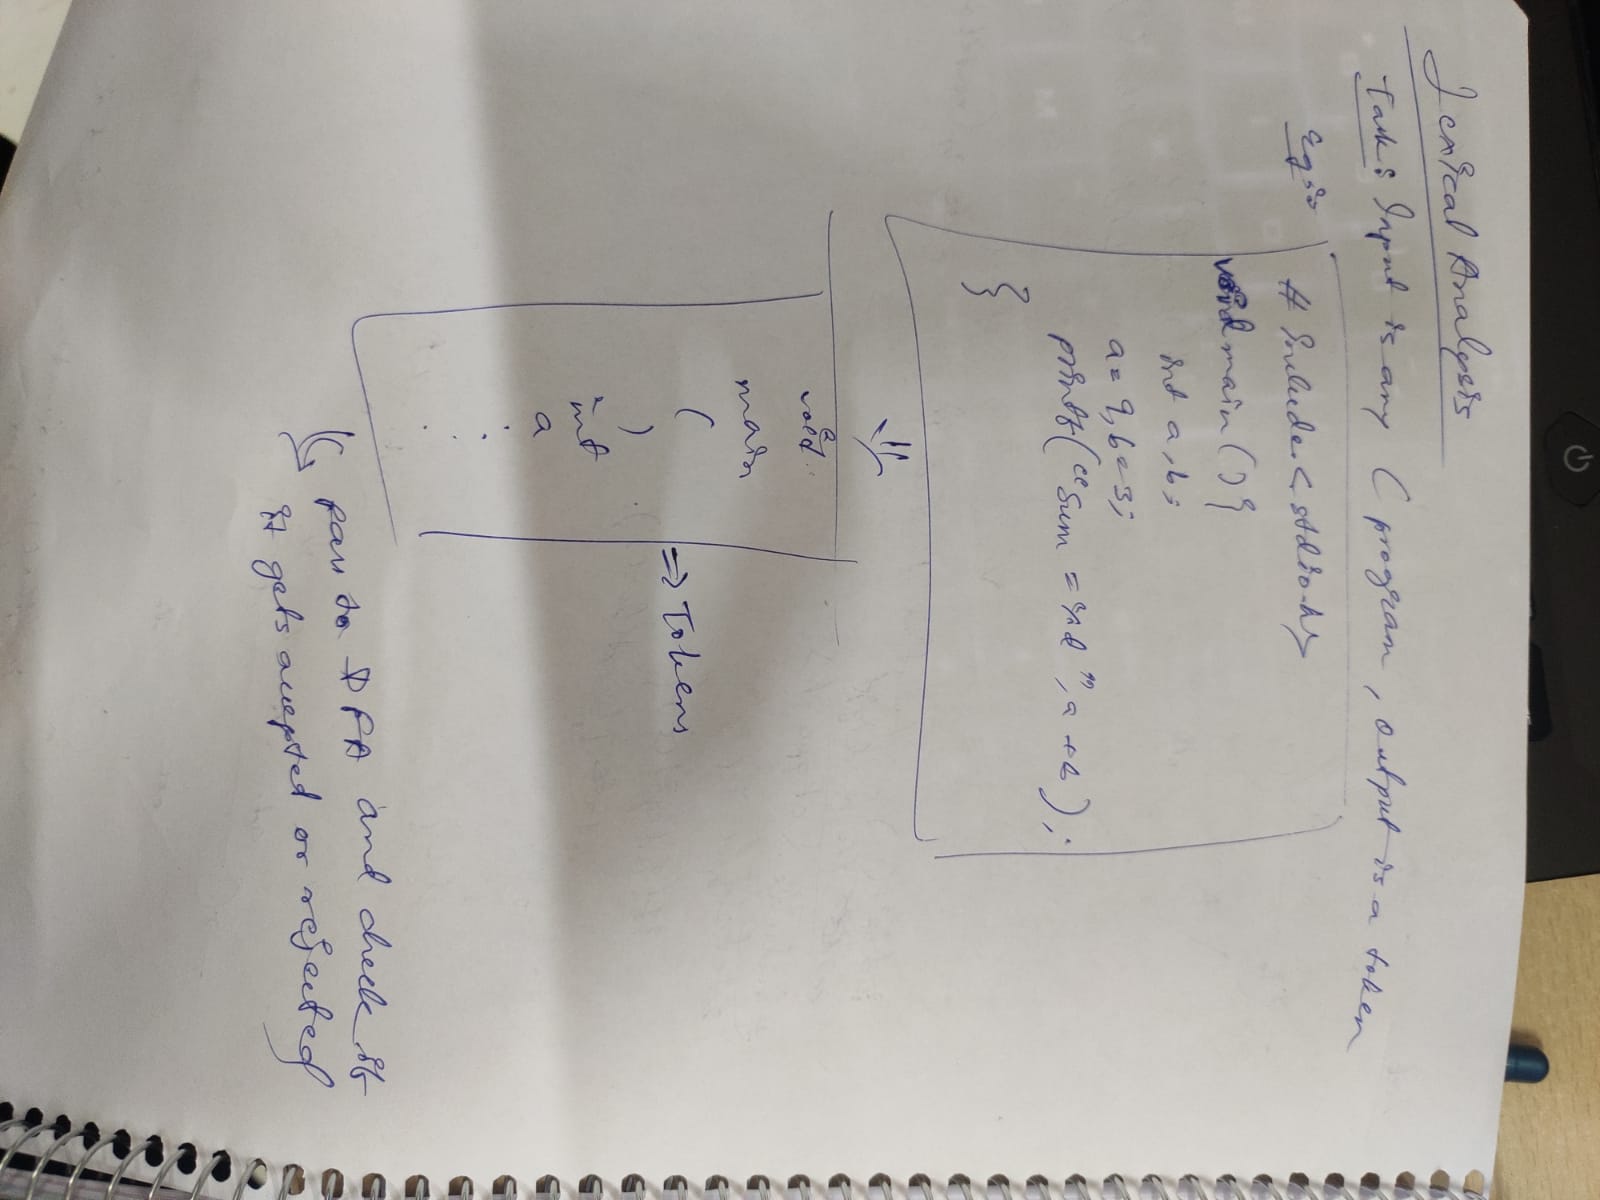 Lexical Analysis
Task: Input is any C program, output is a token
Eg:-
# include <stdio.h>
void main(){
int a,b;
a=9,b=3;
printf("Sum = %d", a+b);
}
void
main
(
)
int
a
=> Tokens
pass to DFA and check if
it gets accepted or rejected